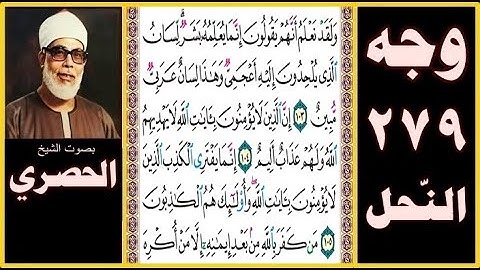 وجه
٢٧٩
النّحل
وَلَقَدْ نَعْلَمُ أَنَّهُمْ يَقُولُونَ إِنَّمَا يُعَلِّمُهُ بَشَرٌ لِّسَانُ
الَّذِي يُلْحِدُونَ إِلَيْهِ أَعْجَمِيٌّ وَهَٰذَا لِسَانٌ عَرَبِيٌّ
مُّبِينٌ ١٠٣ إِنَّ الَّذِينَ لَا يُؤْمِنُونَ بِـَٔايَٰتِ اللَّهِ لَا يَهْدِيهِمُ
اللَّهُ وَلَهُمْ عَذَابٌ أَلِيمٌ ١٠٤ إِنَّمَا يَفْتَرِي الْكَذِبَ الَّذِينَ
لَا يُؤْمِنُونَ بِـَٔايَٰتِ اللَّهِ وَأُولَٰئِكَ هُمُ الْكَٰذِبُونَ
١٠٥ مَن كَفَرَ بِاللَّهِ مِن بَعْدِ إِيمَٰنِهِ إِلَّا مَنْ أُكْرِهَ
بصوت الشيخ
الحصري